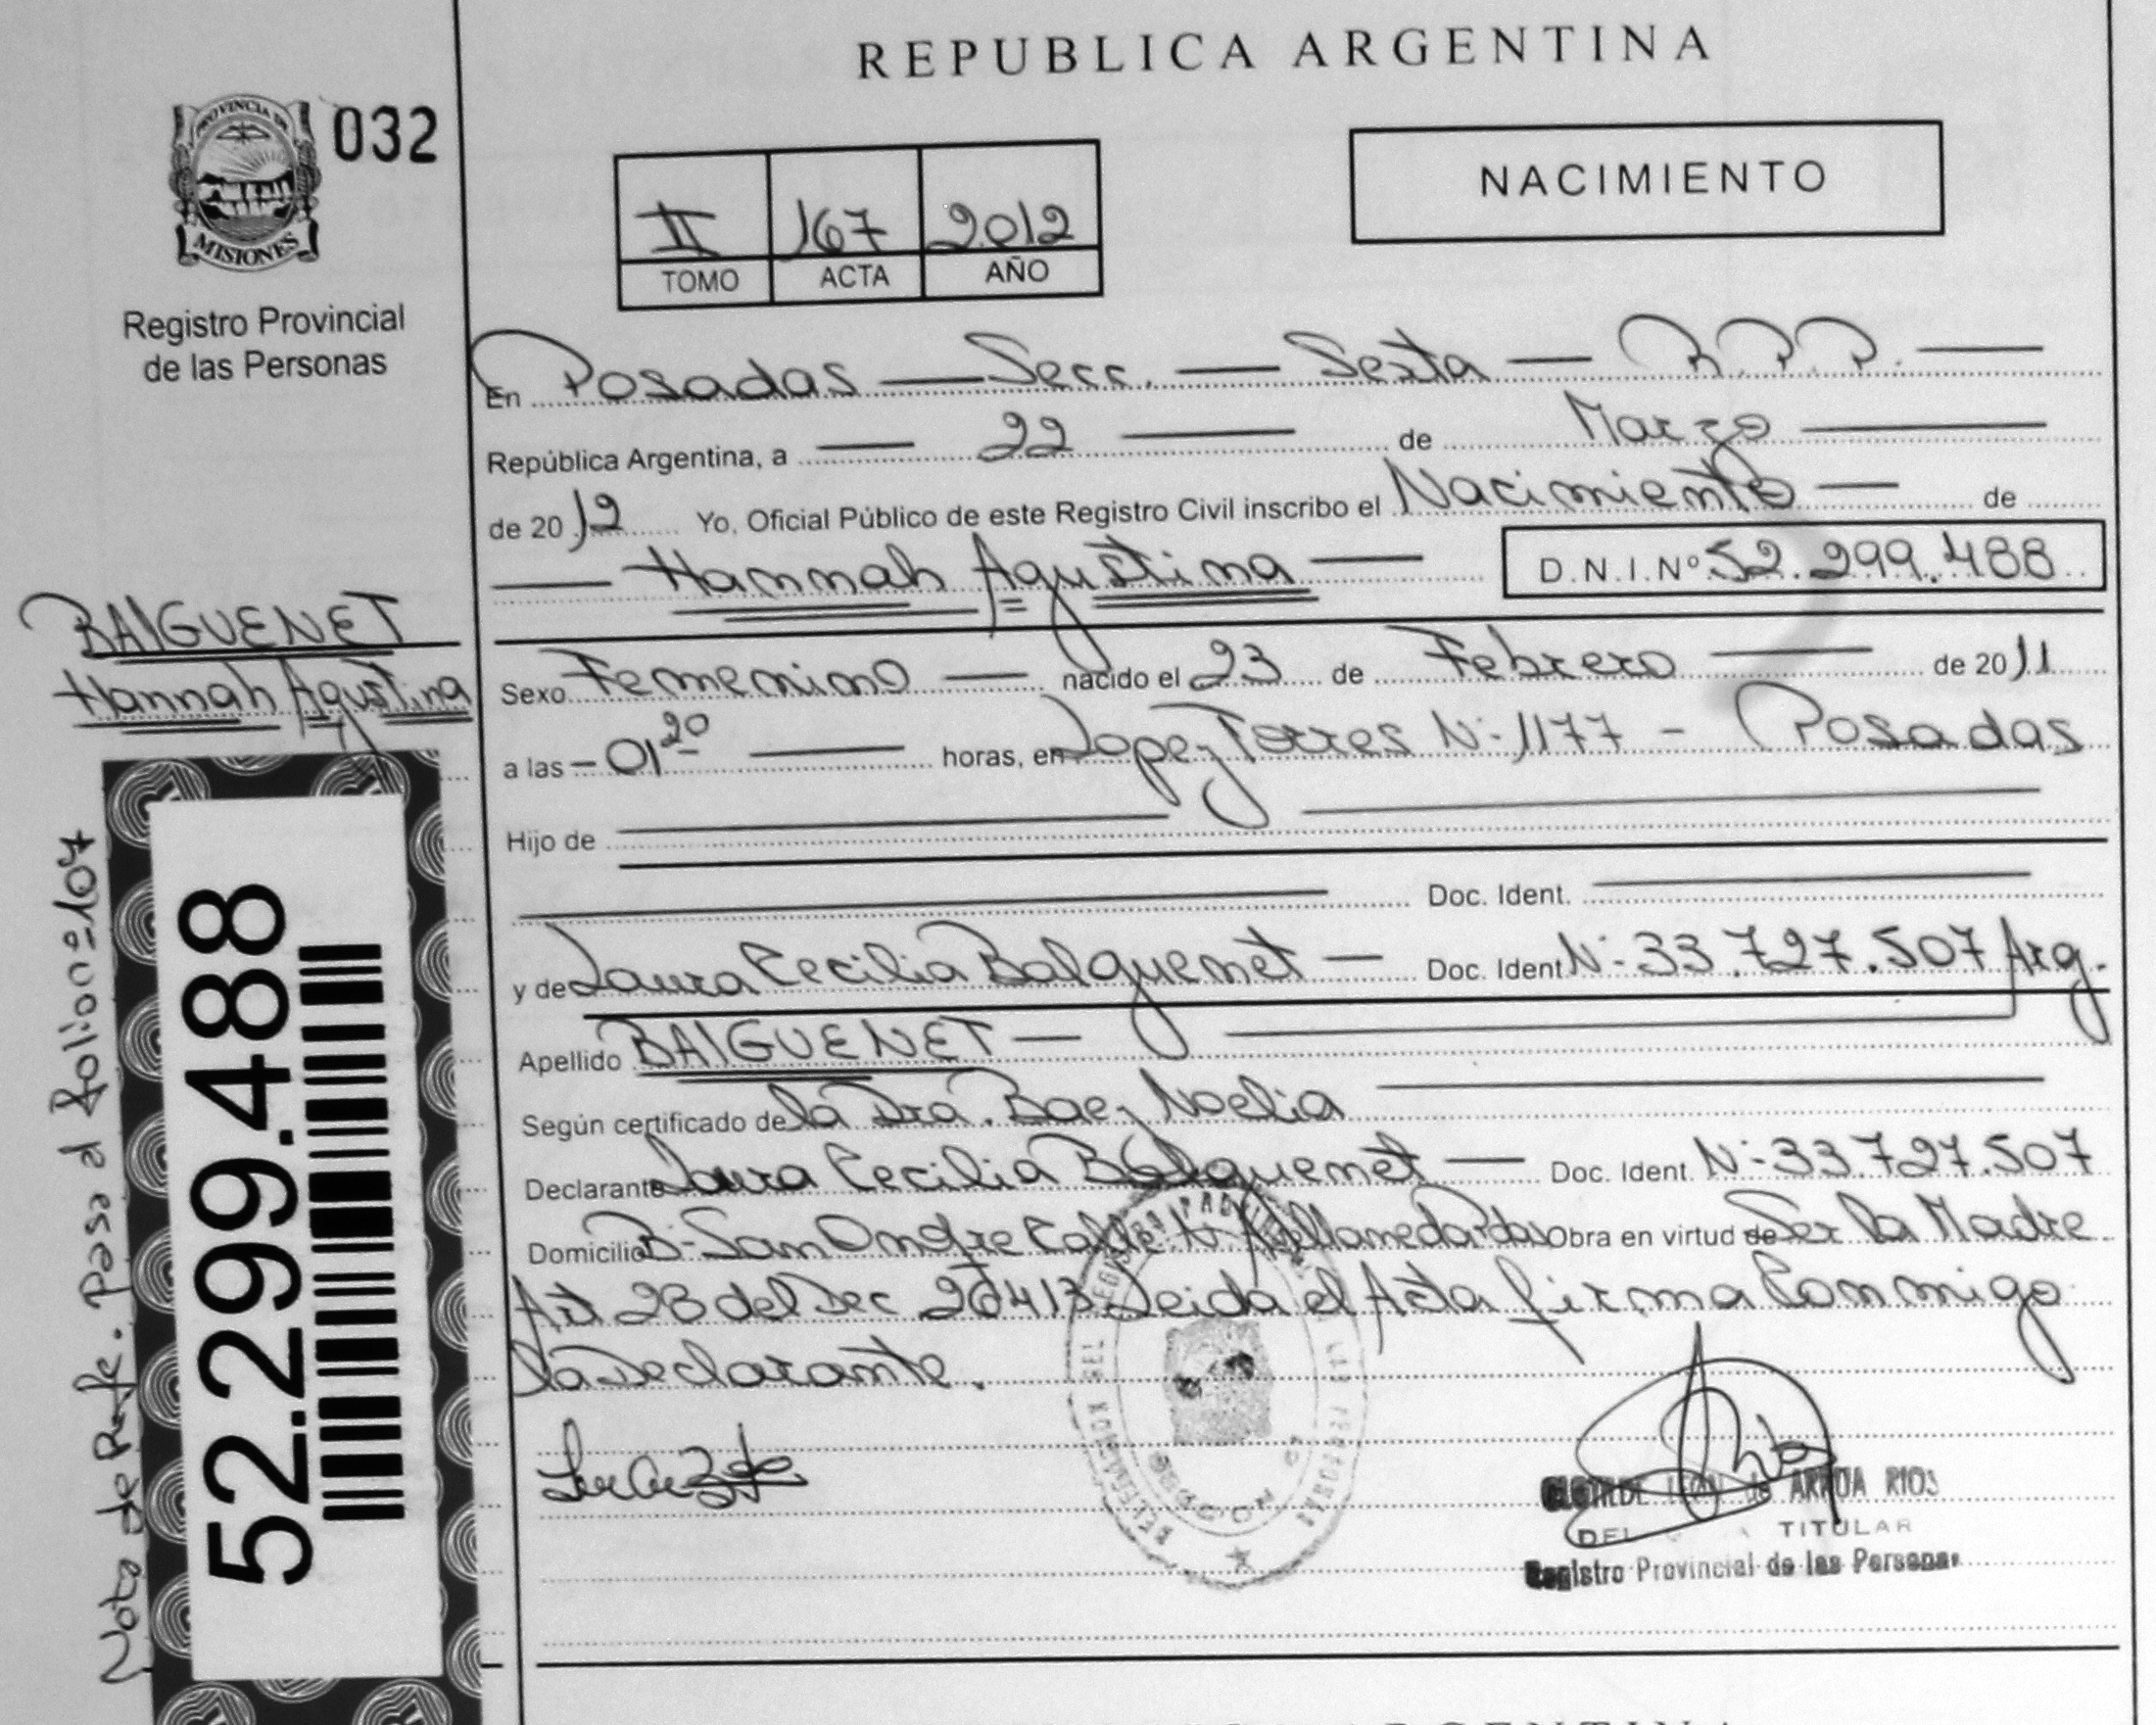 REPUBLICA ARGENTINA
PROVINCIA DE
MISIONES
032
Registro Provincial
de las Personas
NACIMIENTO
II 167 2012
TOMO ACTA AÑO
En Posadas — Secc. — Sexta — R.P.P. —
República Argentina, a — 22 — de Marzo —
de 2012 Yo, Oficial Público de este Registro Civil inscribo el Nacimiento — de
— Hannah Agustina — D.N.I.Nº 52.299.488
BALGUENET
Hannah Agustina
Sexo Femenino — nacido el 23 de Febrero — de 2011
a las – 01 20 — horas, en Lopez Torres N: 1177 - Posadas
Hijo de —
— Doc. Ident. —
y de Laura Cecilia Balguenet — Doc. Ident N: 33.727.507 Arg.
Apellido BALGUENET —
Según certificado de la Dra. Baez Noelia —
Declarante Laura Cecilia Balguenet — Doc. Ident. N: 33.727.507
Domicilio B: San Onofre Calle N. Avellaneda Pdas Obra en virtud de Ser la Madre
Art 28 del Dec 26413 Leida el Acta firma Conmigo
la Declarante.
ARRUA RIOS
TITULAR
Registro Provincial de las Personas
52.299.488
Nota de Refe. Pasa al folio nº 107